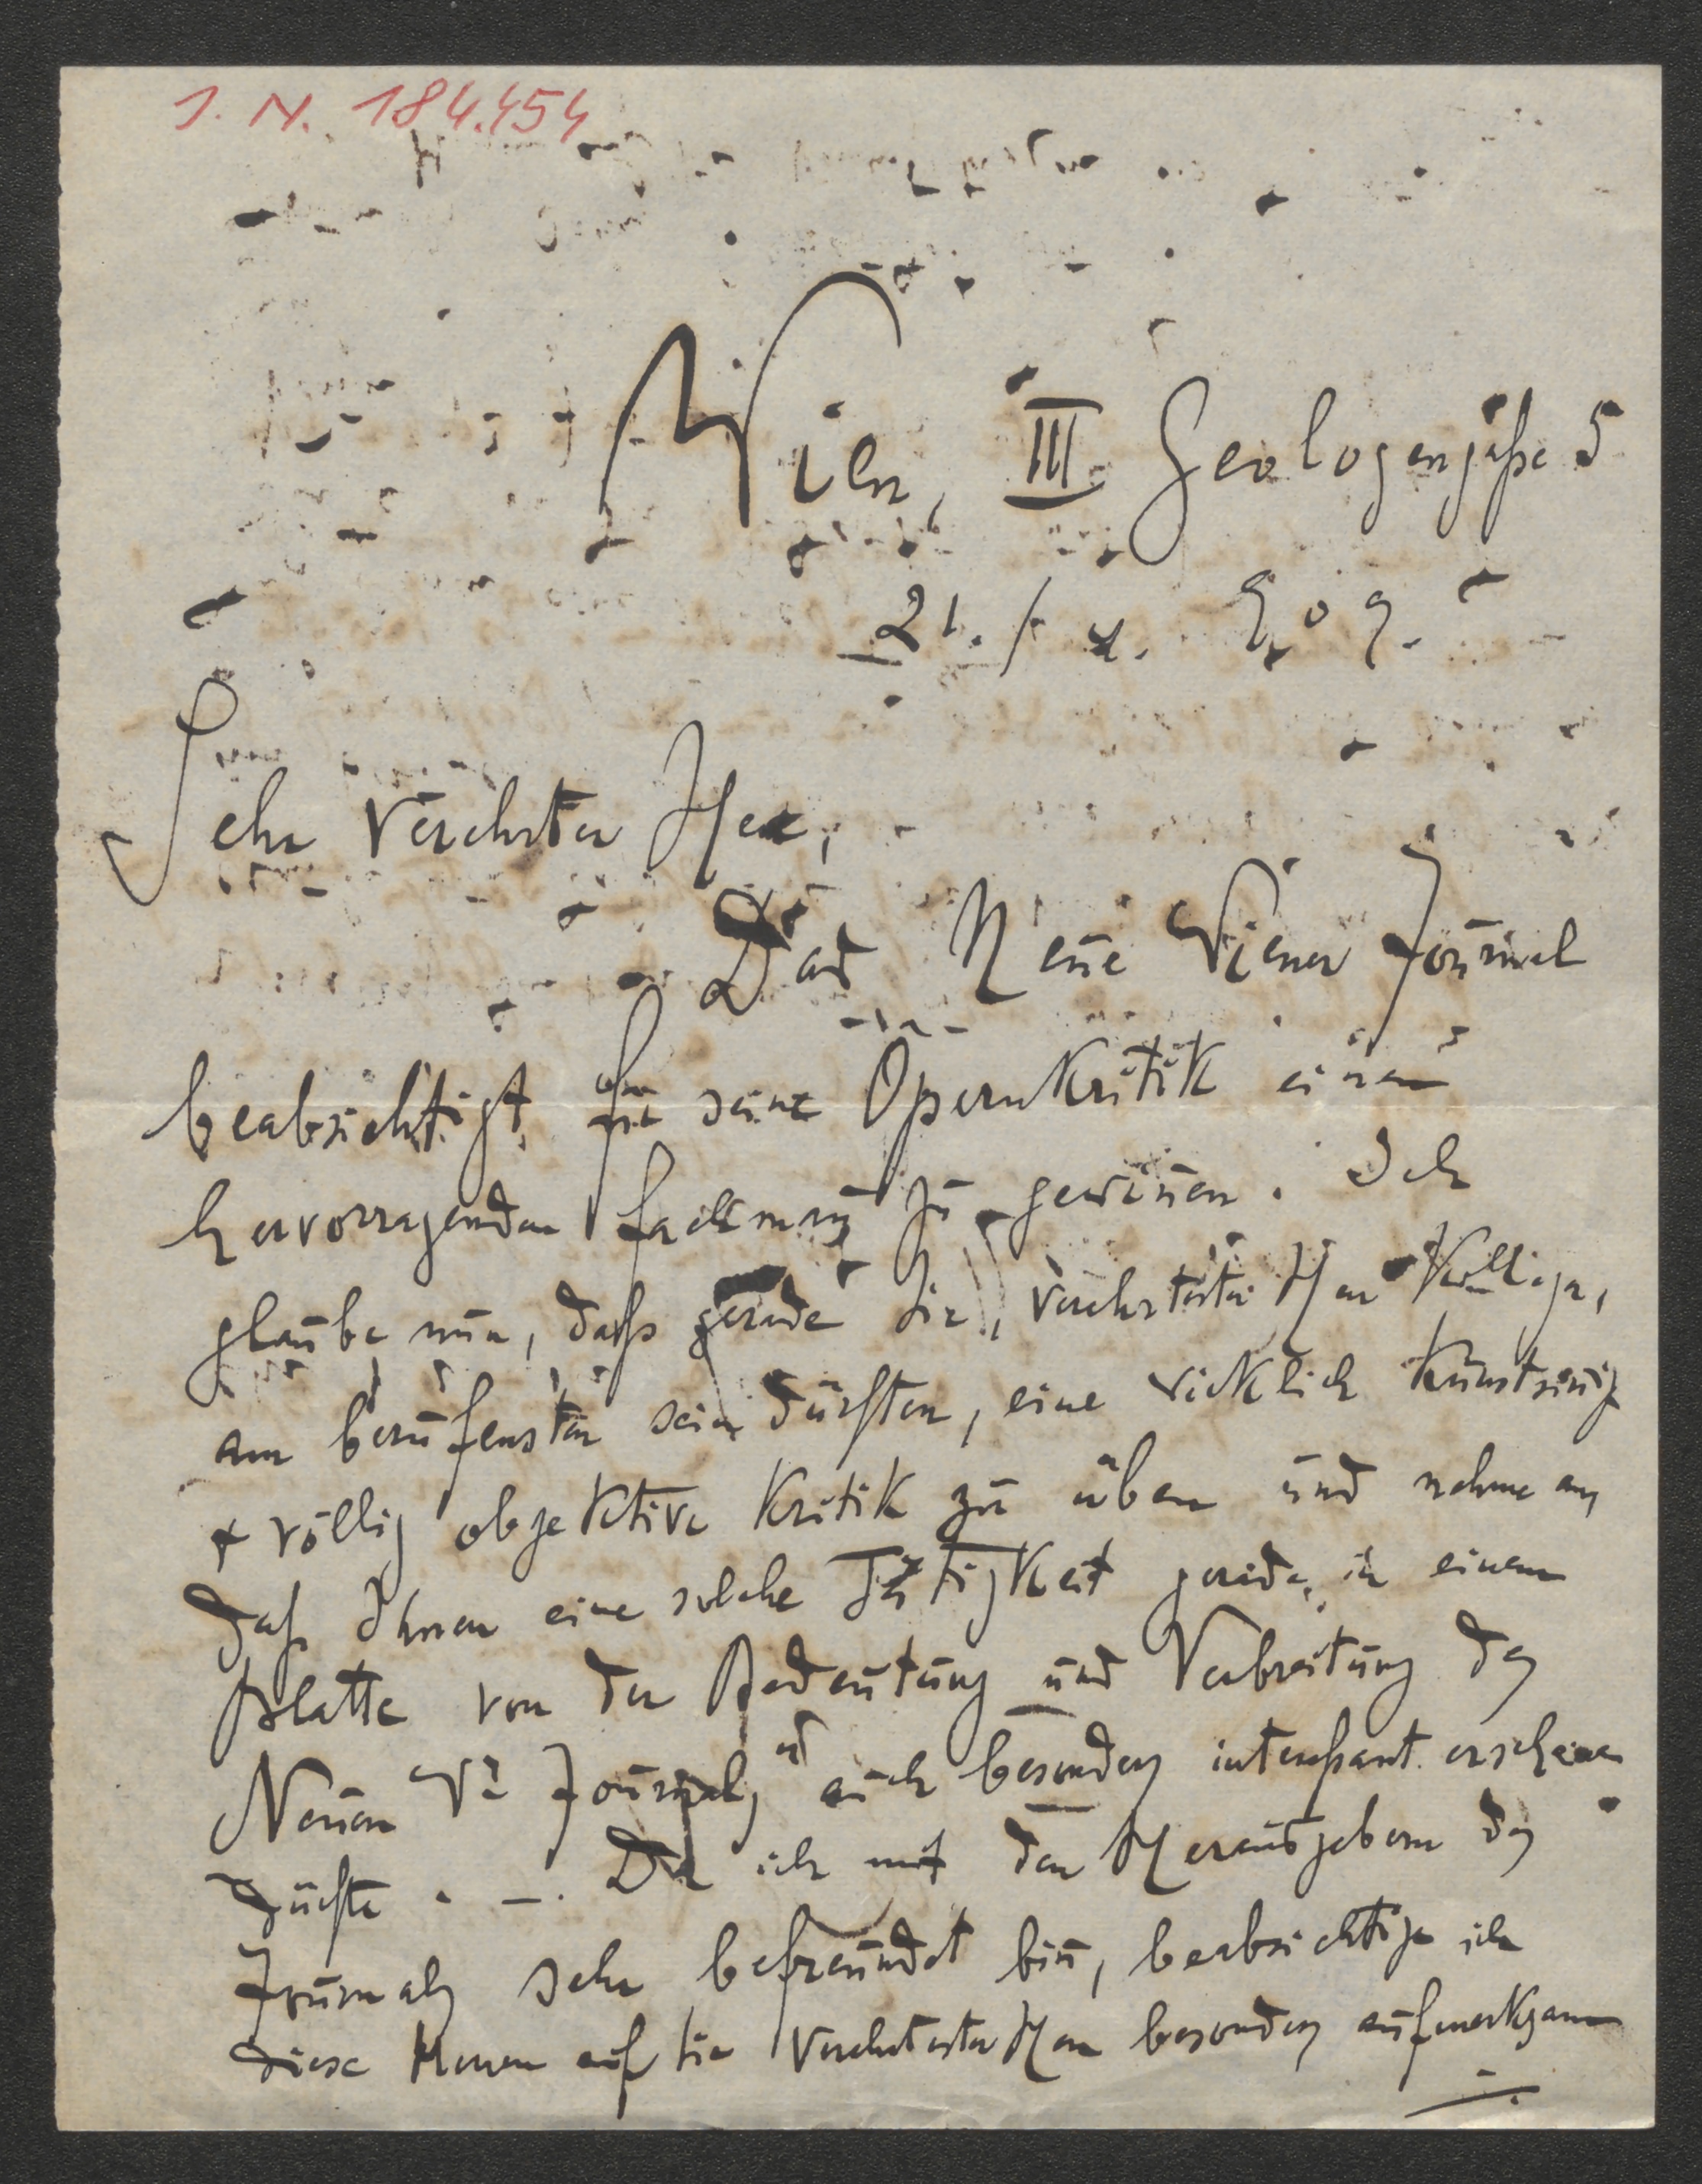 J. N. 184.454
Wien, III. Geologengasse 5
21./ X. 909.
Sehr verehrter Herr,
Das Neue Wiener Journal
beabsichtigt für seine Opernkritik einen
hervorragenden Fachmann zu gewinnen. Ich
glaube nun, dass gerade Sie, verehrtester Herr Kollege,
am berufensten sein dürften, eine wirklich kunstsinnige
+ völlig objektive Kritik zu üben und nehme an
daß Ihnen eine solche Tätigkeit gerade in einem
Blatte von der Bedeutung und Verbreitung des
Neuen Wr Journals auch besonders interessant erscheinen
dürfte. —. Da ich mit den Herausgebern des
Journals sehr befreundet bin, beabsichtige ich
diese Herren auf Sie verehrtester Herr besonders aufmerksam